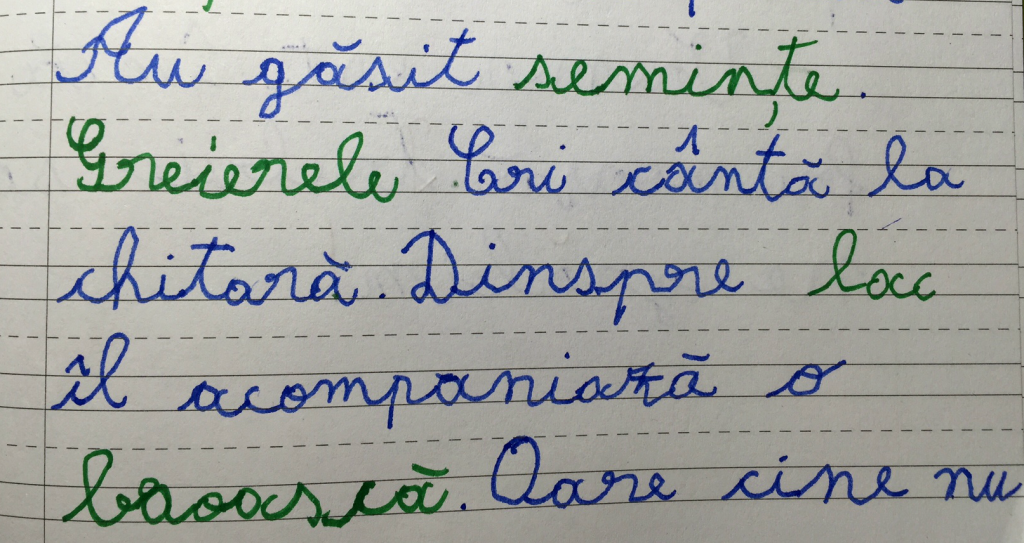 Au găsit semințe.
Greierele Cri cântă la
chitară. Dinspre lac
îl acompaniază o
broască. Oare cine nu